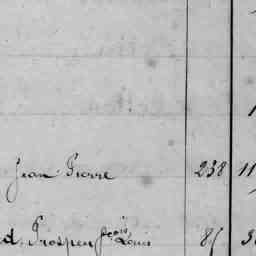 Jean Pierre 238 11
ed, Prosper fçois Louis 85 3